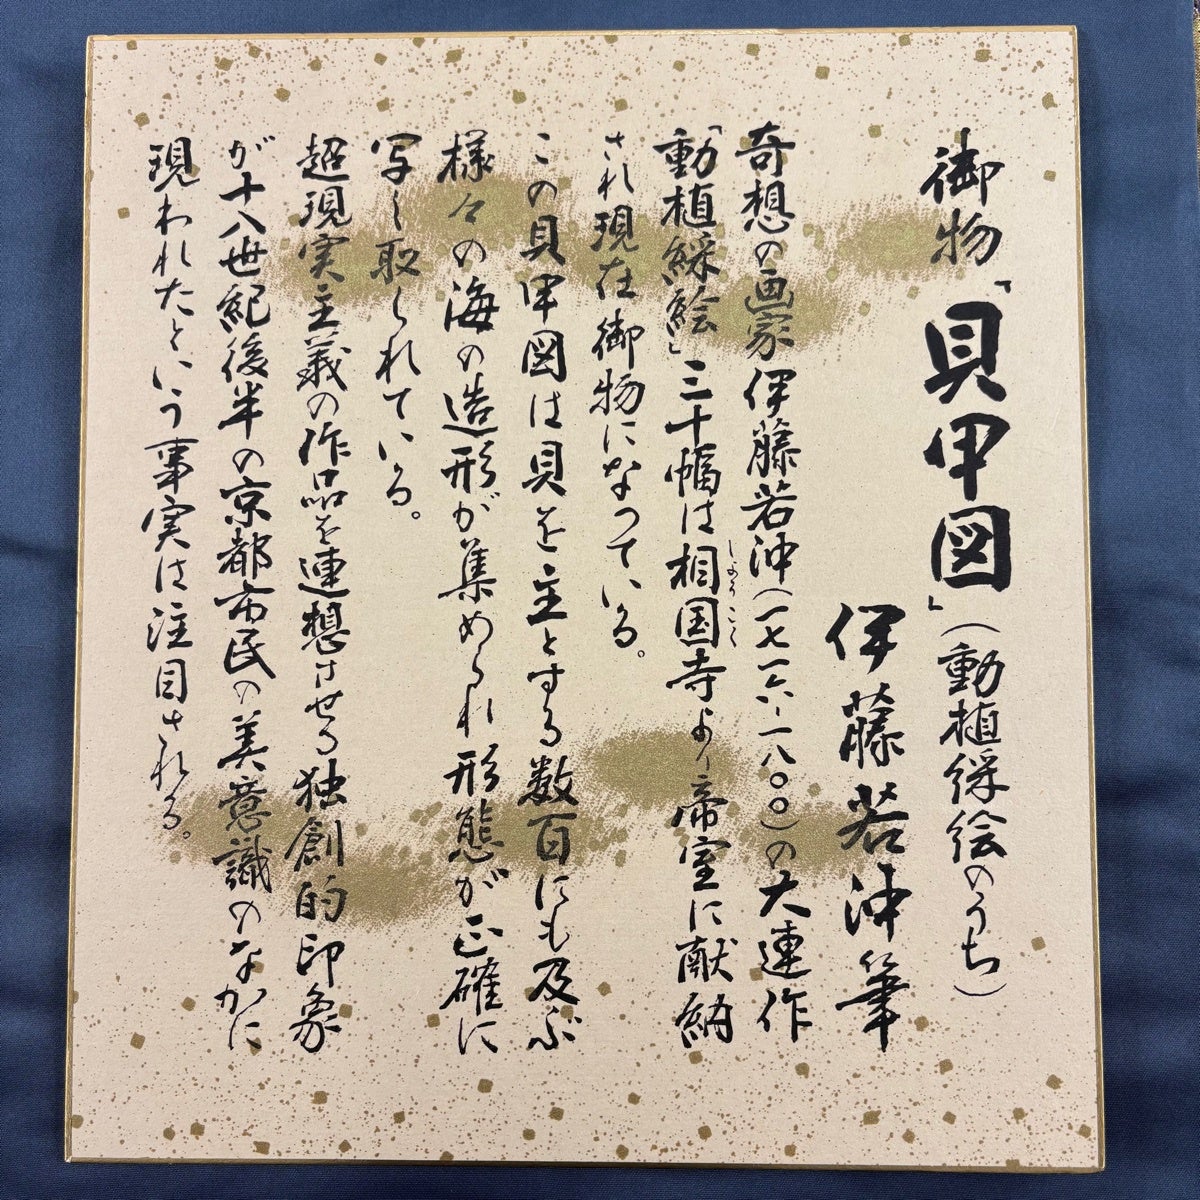 御物「貝甲図」（動植綵絵のうち）
伊藤若沖筆
奇想の画家伊藤若沖（一七一六-一八〇〇）の大連作
「動植綵絵」三十幅は相国寺より帝室に献納
しょうこく
され現在御物になっている。
この貝甲図は貝を主とする数百にも及ぶ
様々の海の造形が集められ形態が正確に
写し取られている。
超現実主義の作品を連想させる独創的印象
が十八世紀後半の京都市民の美意識のなかに
現われたという事実は注目される。